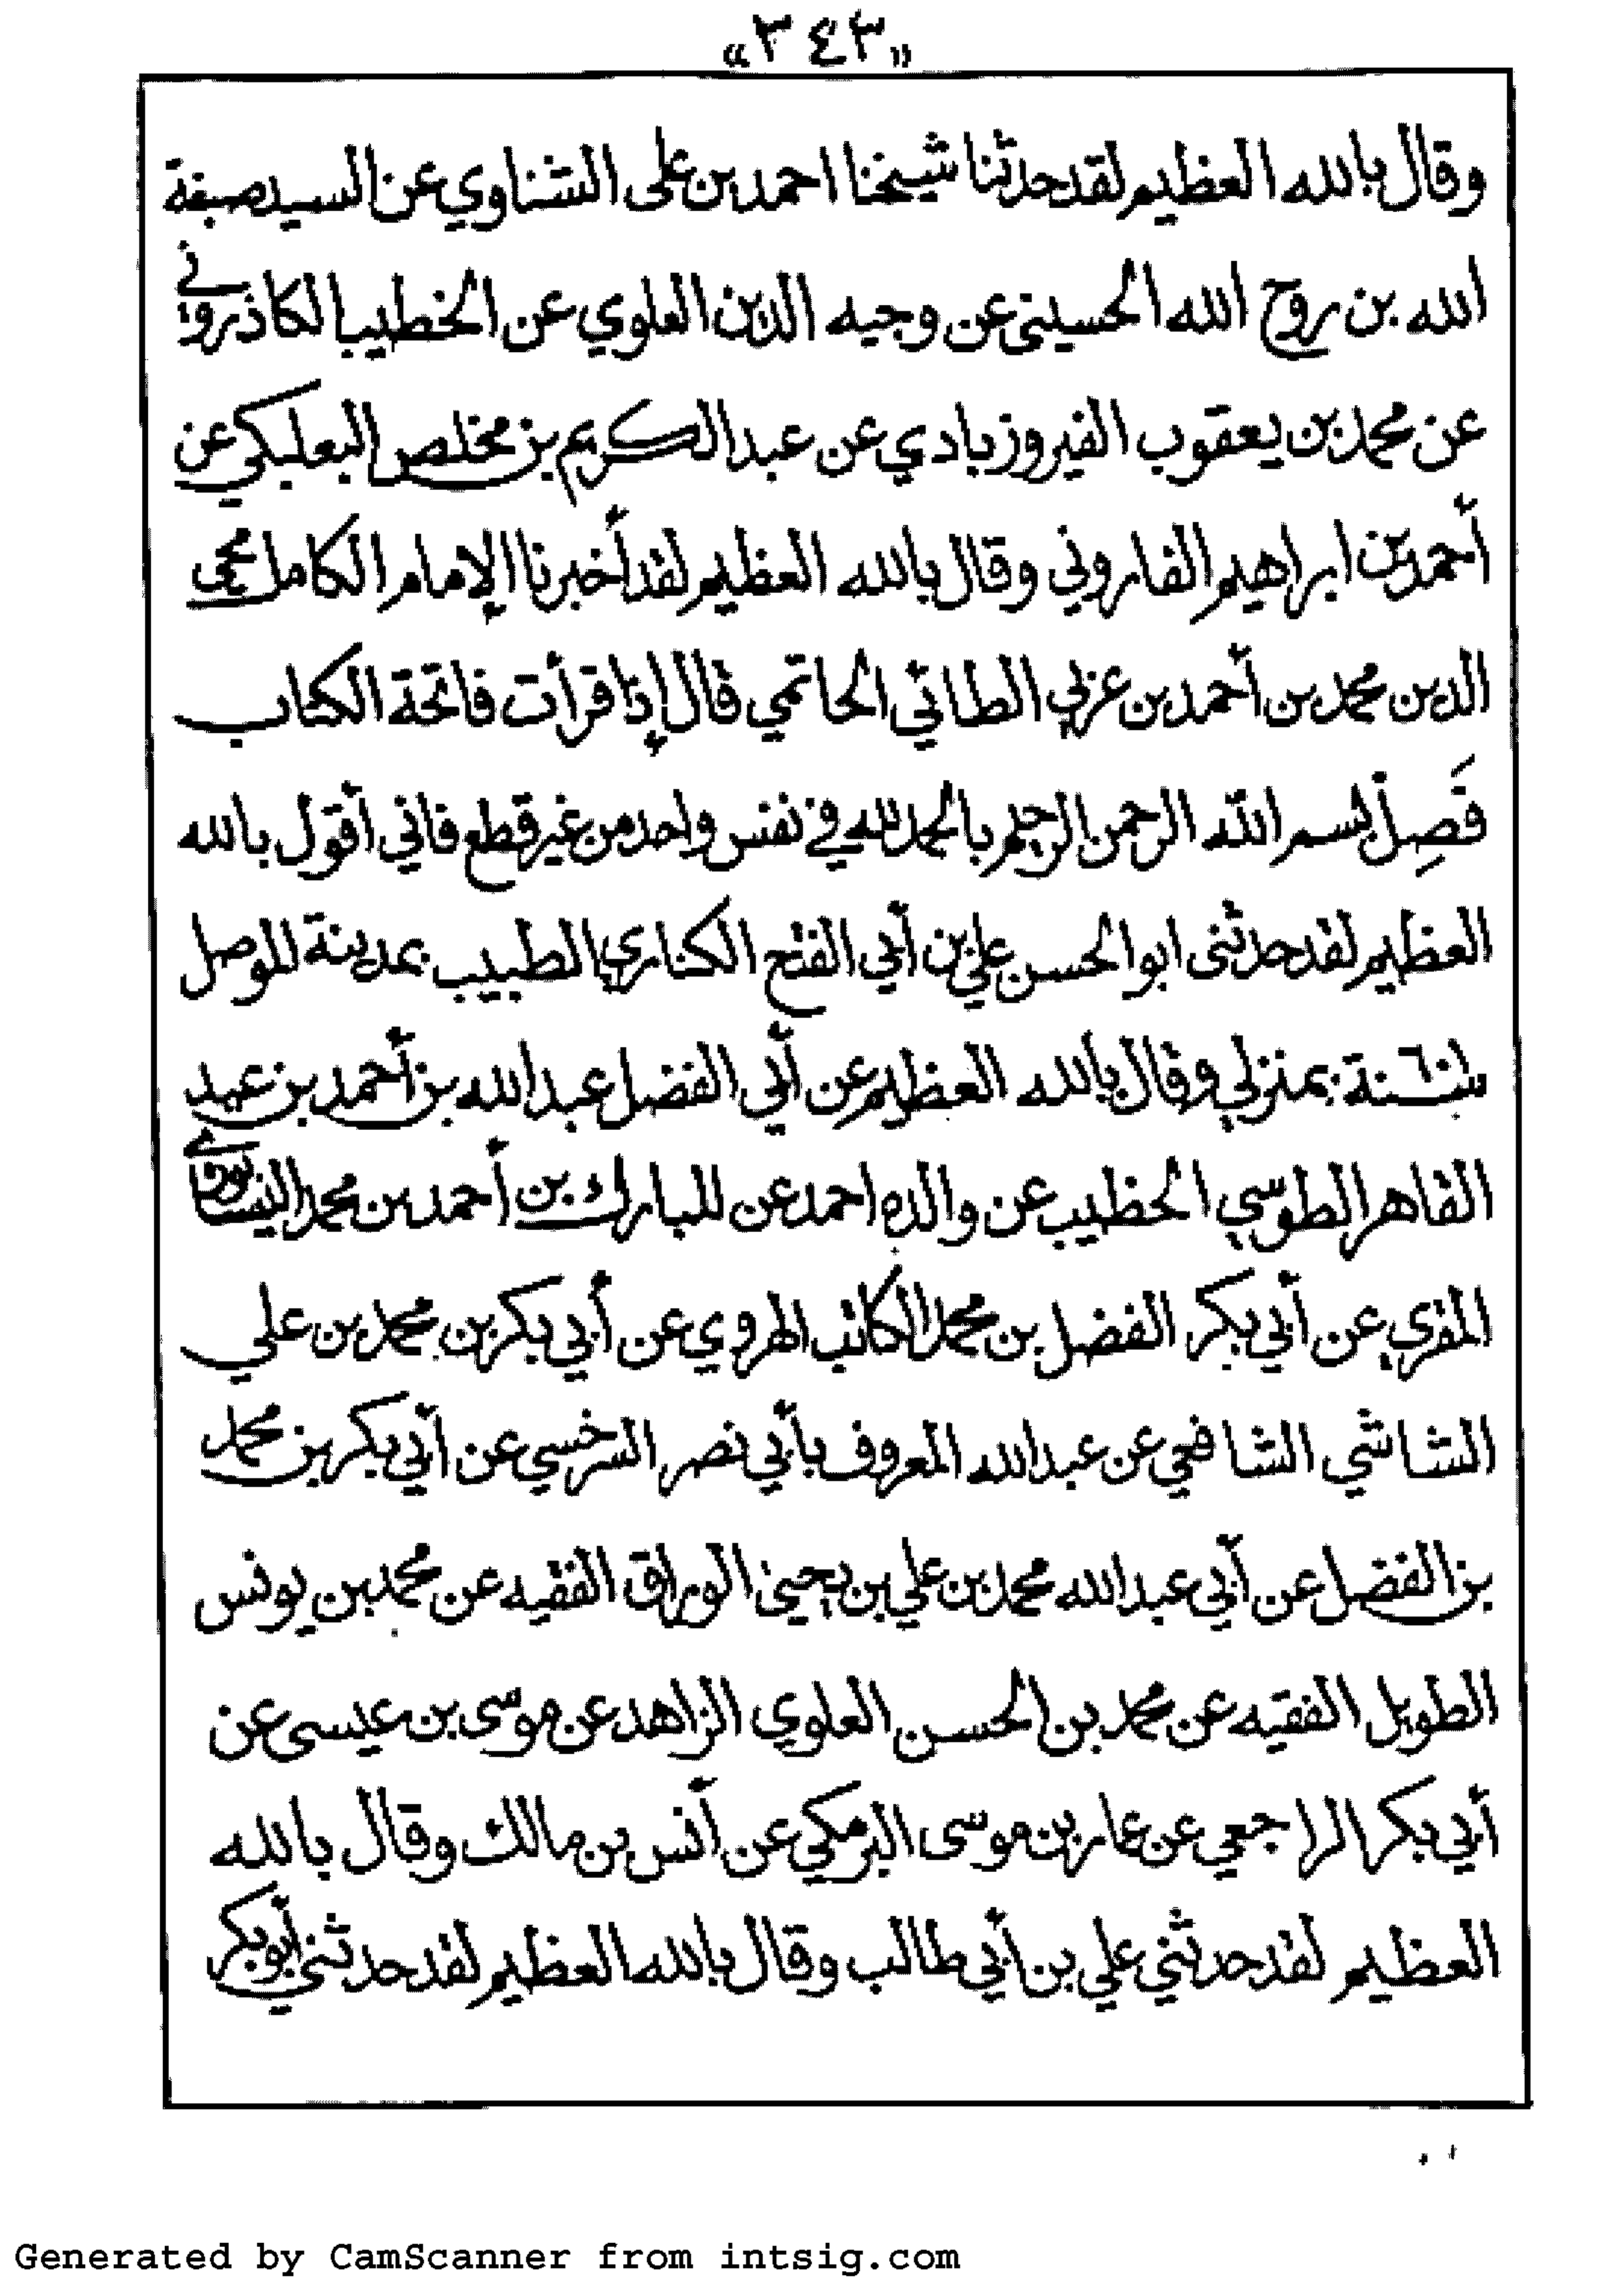 «٣٤٣»
وقال بالله العظيم لقد حدثنا شيخنا احمد بن على الشناوي عن السيد صبغة
الله بن روح الله الحسينى عن وجيه الدين العلوي عن الخطيب الكاذروني
عن محمد بن يعقوب الفيروزبادي عن عبد الكريم بن مخلص البعلبكي عن
أحمد بن ابراهيم الفاروني وقال بالله العظيم لقد أخبرنا الإمام الكامل محيى
الدين محمد بن أحمد بن عربي الطائي الحاتمي قال إذا قرأت فاتحة الكتاب
فَصِلْ بسم الله الرحمن الرحيم بالحمد لله في نفس واحد من غير قطع فاني أقول بالله
العظيم لقد حدثنى ابو الحسن علي بن أبي الفتح الكناري الطبيب بمدينة الموصل
سنة ٦٠١ بمنزلي وقال بالله العظيم عن أبي الفضل عبد الله بن أحمد بن عبد
القاهر الطوسي الخطيب عن والده احمد عن المبارك بن أحمد بن محمد النيسابوري
المقري عن أبي بكر الفضل بن محمد الكاتب الهروي عن أبي بكر بن محمد بن علي
الشاشي الشافعي عن عبد الله المعروف بأبي نصر السرخسي عن أبي بكر بن محمد
بن الفضل عن أبي عبد الله محمد بن علي بن يحيى الوراق الفقيه عن محمد بن يونس
الطويل الفقيه عن محمد بن الحسن العلوي الزاهد عن موسى بن عيسى عن
أبي بكر الراجعي عن عمار بن موسى البرمكي عن أنس بن مالك وقال بالله
العظيم لقد حدثني علي بن أبي طالب وقال بالله العظيم لقد حدثني أبو بكر
Generated by CamScanner from intsig.com